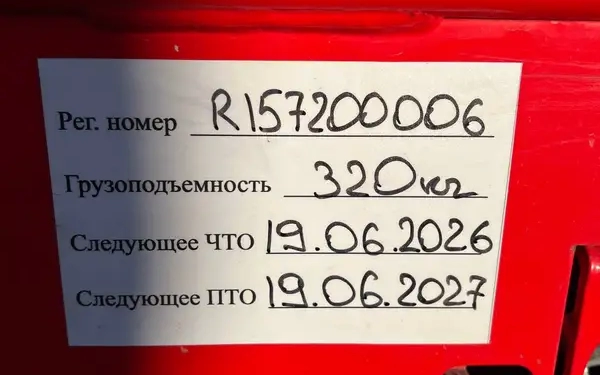 Рег. номер R157200006
Грузоподъемность 320кг
Следующее ЧТО 19.06.2026
Следующее ПТО 19.06.2027